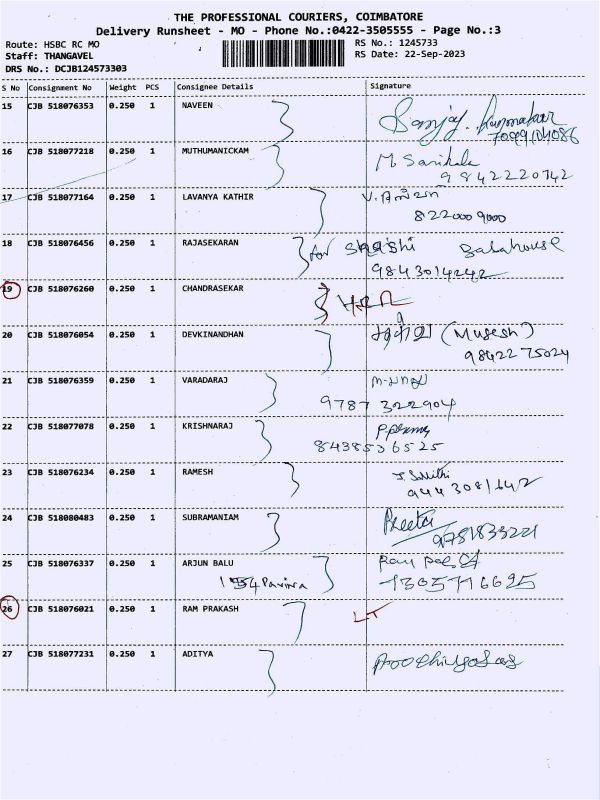 THE PROFESSIONAL COURIERS, COIMBATORE
Delivery Runsheet - MO - Phone No.:0422-3505555 - Page No.:3
Route: HSBC RC MO
RS No.: 1245733
Staff: THANGAVEL
RS Date: 22-Sep-2023
DRS No.: DCJB124573303
S No Consignment No Weight PCS Consignee Details Signature
15 CJB 518076353 0.250 1 NAVEEN
16 CJB 518077218 0.250 1 MUTHUMANICKAM M. Sarikala
9842220742
17 CJB 518077164 0.250 1 LAVANYA KATHIR
8220009000
18 CJB 518076456 0.250 1 RAJASEKARAN for
9843014242
19 CJB 518076260 0.250 1 CHANDRASEKAR
20 CJB 518076054 0.250 1 DEVKINANDHAN (Mugesh)
9842275024
21 CJB 518076359 0.250 1 VARADARAJ
9787 322904
22 CJB 518077078 0.250 1 KRISHNARAJ
8438536525
23 CJB 518076234 0.250 1 RAMESH
9443081642
24 CJB 518080483 0.250 1 SUBRAMANIAM Preetha
9751833221
25 CJB 518076337 0.250 1 ARJUN BALU
26 CJB 518076021 0.250 1 RAM PRAKASH LT
27 CJB 518077231 0.250 1 ADITYA